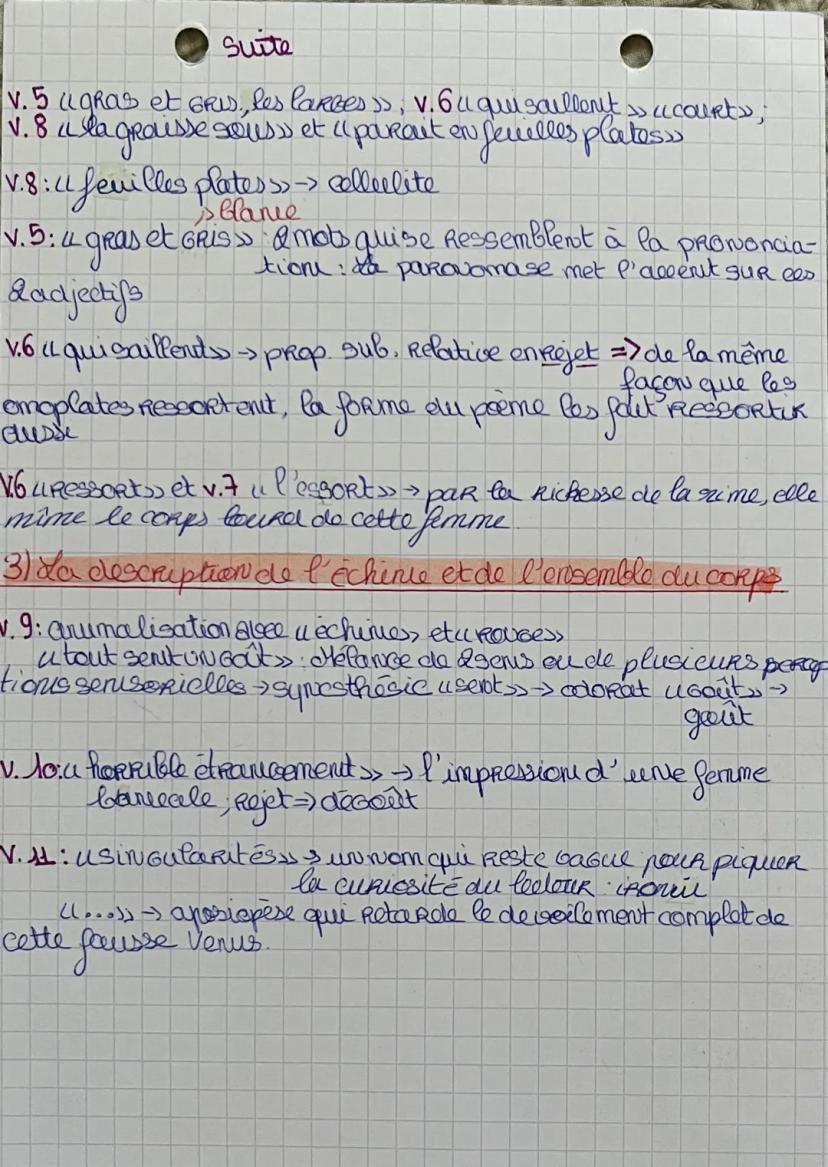 suite
v.5 «gras et gris, les larges», v.6 «qui saillent» «court»;
v.8 «la graisse sous» et «parait en feuilles plates»
v.8: «feuilles plates» → cellulite
v.5: «gras et gris» : 2 mots qui se ressemblent à la prononcia-
tion : la paronomase met l'accent sur ces
2 adjectifs
v.6 «qui saillent» → prop. sub. relative en rejet => de la même
façon que les
omoplates ressortent, la forme du poème les fait ressortir
aussi
v.6 «ressort» et v.7 «l'essort» → par la richesse de la rime, elle
mime le corps lourd de cette femme.
3) La description de l'échine et de l'ensemble du corps
v.9: animalisation avec «échine» et «rouge»
«tout sent un goût» : mélange de 2 sens ou de plusieurs percep
tions sensorielles → synesthésie «sent» → odorat «goût» →
goût
v.10: «horrible étrangement» → l'impression d'une femme
bancale ; rejet => dégoût
v.11: «singularités» → un nom qui reste vague pour piquer
la curiosité du lecteur : ironie
«...» → aposiopèse qui retarde le devoilement complet de
cette fausse Venus.